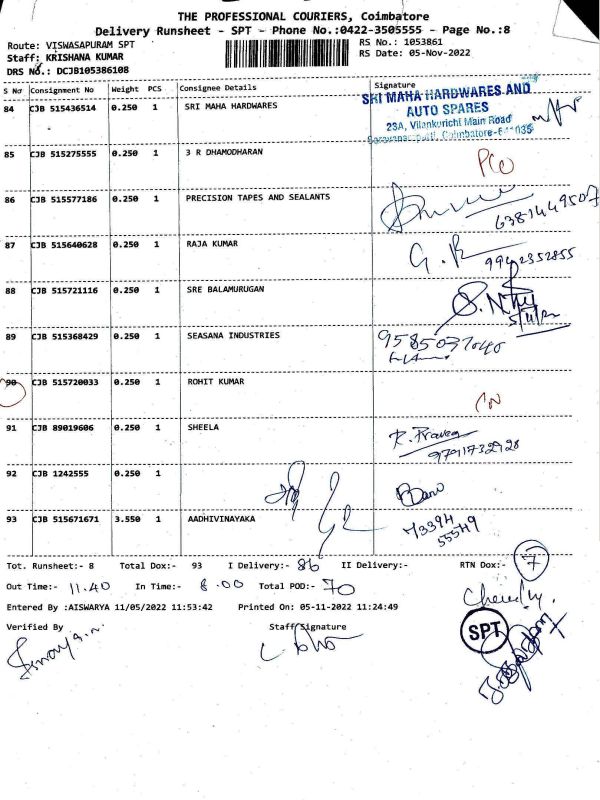 THE PROFESSIONAL COURIERS, Coimbatore
Delivery Runsheet - SPT - Phone No.:0422-3505555 - Page No.:8
Route: VISWASAPURAM SPT
Staff: KRISHANA KUMAR
DRS No.: DCJB105386108
RS No.: 1053861
RS Date: 05-Nov-2022
S No Consignment No Weight PCS Consignee Details Signature
84 CJB 515436514 0.250 1 SRI MAHA HARDWARES
SRI MAHA HARDWARES AND
AUTO SPARES
23A, Vilankurichi Main Road
Coimbatore-641035
85 CJB 515275555 0.250 1 3 R DHAMODHARAN
86 CJB 515577186 0.250 1 PRECISION TAPES AND SEALANTS 6381449507
87 CJB 515640628 0.250 1 RAJA KUMAR G. R 9942352855
88 CJB 515721116 0.250 1 SRE BALAMURUGAN
5/11/22
89 CJB 515368429 0.250 1 SEASANA INDUSTRIES 9585037040
90 CJB 515720033 0.250 1 ROHIT KUMAR
91 CJB 89019606 0.250 1 SHEELA R. Praveen
92 CJB 1242555 0.250 1
93 CJB 515671671 3.550 1 AADHIVINAYAKA 73394
55549
Tot. Runsheet:- 8 Total Dox:- 93 I Delivery:- 86 II Delivery:- RTN Dox:- 7
Out Time:- 11.40 In Time:- 6.00 Total POD:- 70
Entered By :AISWARYA 11/05/2022 11:53:42 Printed On: 05-11-2022 11:24:49
Verified By Staff Signature
SPT